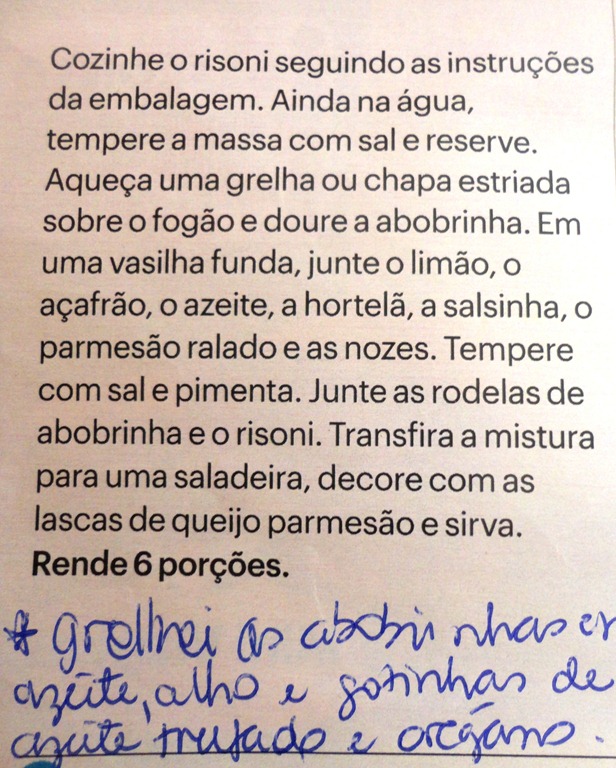 Cozinhe o risoni seguindo as instruções
da embalagem. Ainda na água,
tempere a massa com sal e reserve.
Aqueça uma grelha ou chapa estriada
sobre o fogão e doure a abobrinha. Em
uma vasilha funda, junte o limão, o
açafrão, o azeite, a hortelã, a salsinha, o
parmesão ralado e as nozes. Tempere
com sal e pimenta. Junte as rodelas de
abobrinha e o risoni. Transfira a mistura
para uma saladeira, decore com as
lascas de queijo parmesão e sirva.
Rende 6 porções.
* grelhei as abobrinhas em
azeite, alho e gotinhas de
azeite trufado e orégano.